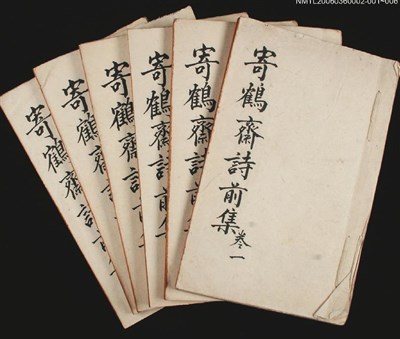 NMTL20060360002-001~006
寄鶴齋詩前集 卷一
寄鶴齋詩
寄鶴齋詩前
寄鶴齋詩前
寄鶴齋詩前
寄鶴齋詩前